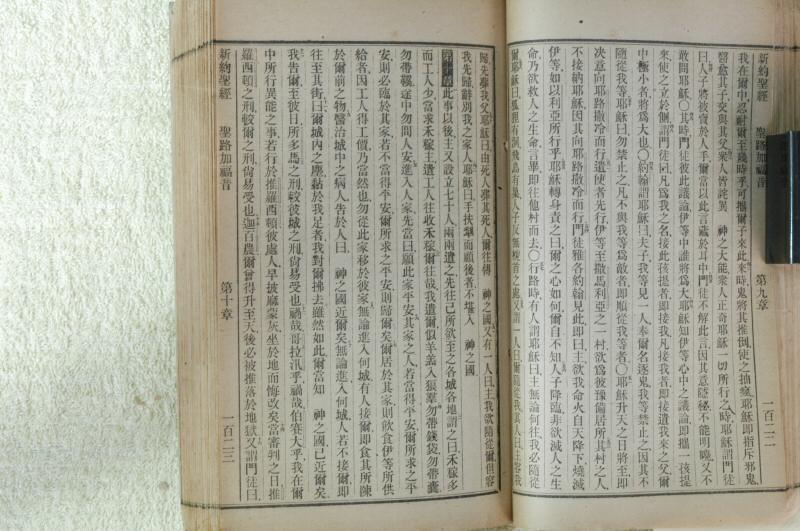 新約聖經 聖路加福音 第九章 一百二二
我在爾中忍耐爾至幾時乎可攜爾子來此來時鬼將其推倒使之抽瘋耶穌即指斥邪鬼
醫愈其子交與其父衆人皆詫異 神之大能衆人正奇耶穌一切所行之時耶穌謂門徒
曰人子將被賣於人手爾當以此言藏於耳中門徒不解此言因其意隱祕不能明曉又不
敢問耶穌○其時門徒彼此議論伊等中誰將爲大耶穌知伊等心中之議論即攜一孩提
來使之立於側謂門徒曰凡爲我之名接此孩提者即接我凡接我者即接遣我來之父爾
中極小者將爲大也○約翰謂耶穌曰夫子我等見一人奉爾名逐鬼我等禁止之因其不
隨從我等耶穌曰勿禁止之凡不與我等爲敵者即順從我等者○耶穌升天之日將至即
决意向耶路撒冷而行遣使者先行伊等至撒馬利亞之一村欲爲彼豫備居所其村之人
不接納耶穌因其向耶路撒冷而行門徒雅各約翰見此即曰主欲我命火自天降下燒滅
伊等如以利亞所行乎耶穌轉身責之曰爾之心如何爾自不知人子降臨非欲滅人之生
命乃欲救人之生命言畢即往他村而去○行路時有人謂耶穌曰主無論何往我必隨從
爾耶穌曰狐狸有洞飛鳥有巢人子反無枕首之處又謂一人曰爾隨從我其人曰主容我
歸先葬我父耶穌曰由死人葬其死人爾往傳 神之國又有一人曰主我欲隨從爾但容
我先歸辭別我之家人耶穌曰手扶犂而顧後者不堪入 神之國
第十章此事以後主又設立七十人兩兩遣之先往己所欲至之各城各地謂之曰禾稼多
而工人少當求禾稼主遣工人往收禾稼爾往哉我遣爾似羊羔入狼羣勿帶錢袋勿帶囊
勿帶鞵途中勿問人安進入人家先當曰願此家平安其家之人若當得平安爾所求之平
安則必臨於其家若不當得平安爾所求之平安則歸爾矣爾居於其家則飲食伊等所供
給者因工人得工價乃當然也勿從此家移於彼家無論進入何城有人接爾即食其所陳
於爾前之物醫治城中之病人告於人曰 神之國近爾矣無論進入何城人若不接爾即
往至其街曰爾城內之塵黏於我足者我對爾拂去雖然如此爾當知 神之國已近爾矣
我告爾至彼日所多馬之刑較彼城之刑尙易受也禍哉哥拉汛乎禍哉伯賽大乎我在爾
中所行異能之事若行於推羅西頓彼處人早披麻蒙灰坐於地而悔改矣當審判之日推
羅西頓之刑較爾之刑尙易受也迦百農爾曾得升至天後必被推落於地獄又謂門徒曰
新約聖經 聖路加福音 第十章 一百二三